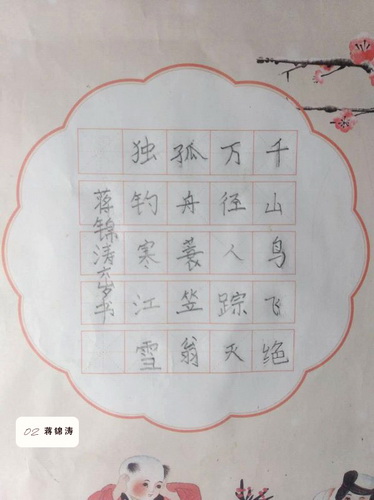 千山鸟飞绝
万径人踪灭
孤舟蓑笠翁
独钓寒江雪
蒋锦涛六岁书
02 蒋锦涛